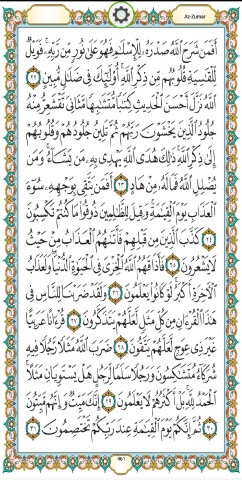 Az-Zumar
أَفَمَن شَرَحَ ٱللَّهُ صَدْرَهُۥ لِلْإِسْلَٰمِ فَهُوَ عَلَىٰ نُورٍ مِّن رَّبِّهِۦ ۚ فَوَيْلٌ
لِّلْقَٰسِيَةِ قُلُوبُهُم مِّن ذِكْرِ ٱللَّهِ ۚ أُو۟لَٰٓئِكَ فِى ضَلَٰلٍ مُّبِينٍ ٢٢
ٱللَّهُ نَزَّلَ أَحْسَنَ ٱلْحَدِيثِ كِتَٰبًا مُّتَشَٰبِهًا مَّثَانِىَ تَقْشَعِرُّ مِنْهُ
جُلُودُ ٱلَّذِينَ يَخْشَوْنَ رَبَّهُمْ ثُمَّ تَلِينُ جُلُودُهُمْ وَقُلُوبُهُمْ
إِلَىٰ ذِكْرِ ٱللَّهِ ۚ ذَٰلِكَ هُدَى ٱللَّهِ يَهْدِى بِهِۦ مَن يَشَآءُ ۚ وَمَن
يُضْلِلِ ٱللَّهُ فَمَا لَهُۥ مِنْ هَادٍ ٢٣ أَفَمَن يَتَّقِى بِوَجْهِهِۦ سُوٓءَ
ٱلْعَذَابِ يَوْمَ ٱلْقِيَٰمَةِ ۚ وَقِيلَ لِلظَّٰلِمِينَ ذُوقُوا۟ مَا كُنتُمْ تَكْسِبُونَ
٢٤ كَذَّبَ ٱلَّذِينَ مِن قَبْلِهِمْ فَأَتَىٰهُمُ ٱلْعَذَابُ مِنْ حَيْثُ
لَا يَشْعُرُونَ ٢٥ فَأَذَاقَهُمُ ٱللَّهُ ٱلْخِزْىَ فِى ٱلْحَيَوٰةِ ٱلدُّنْيَا ۖ وَلَعَذَابُ
ٱلْءَاخِرَةِ أَكْبَرُ ۚ لَوْ كَانُوا۟ يَعْلَمُونَ ٢٦ وَلَقَدْ ضَرَبْنَا لِلنَّاسِ فِى
هَٰذَا ٱلْقُرْءَانِ مِن كُلِّ مَثَلٍ لَّعَلَّهُمْ يَتَذَكَّرُونَ ٢٧ قُرْءَانًا عَرَبِيًّا
غَيْرَ ذِى عِوَجٍ لَّعَلَّهُمْ يَتَّقُونَ ٢٨ ضَرَبَ ٱللَّهُ مَثَلًا رَّجُلًا فِيهِ
شُرَكَآءُ مُتَشَٰكِسُونَ وَرَجُلًا سَلَمًا لِّرَجُلٍ هَلْ يَسْتَوِيَانِ مَثَلًا ۚ
ٱلْحَمْدُ لِلَّهِ ۚ بَلْ أَكْثَرُهُمْ لَا يَعْلَمُونَ ٢٩ إِنَّكَ مَيِّتٌ وَإِنَّهُم مَّيِّتُونَ
٣٠ ثُمَّ إِنَّكُمْ يَوْمَ ٱلْقِيَٰمَةِ عِندَ رَبِّكُمْ تَخْتَصِمُونَ ٣١
٤٦١